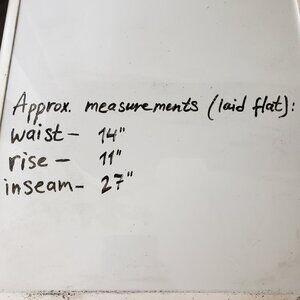 Approx. measurements (laid flat):
waist - 14"
rise - 11"
inseam - 27"